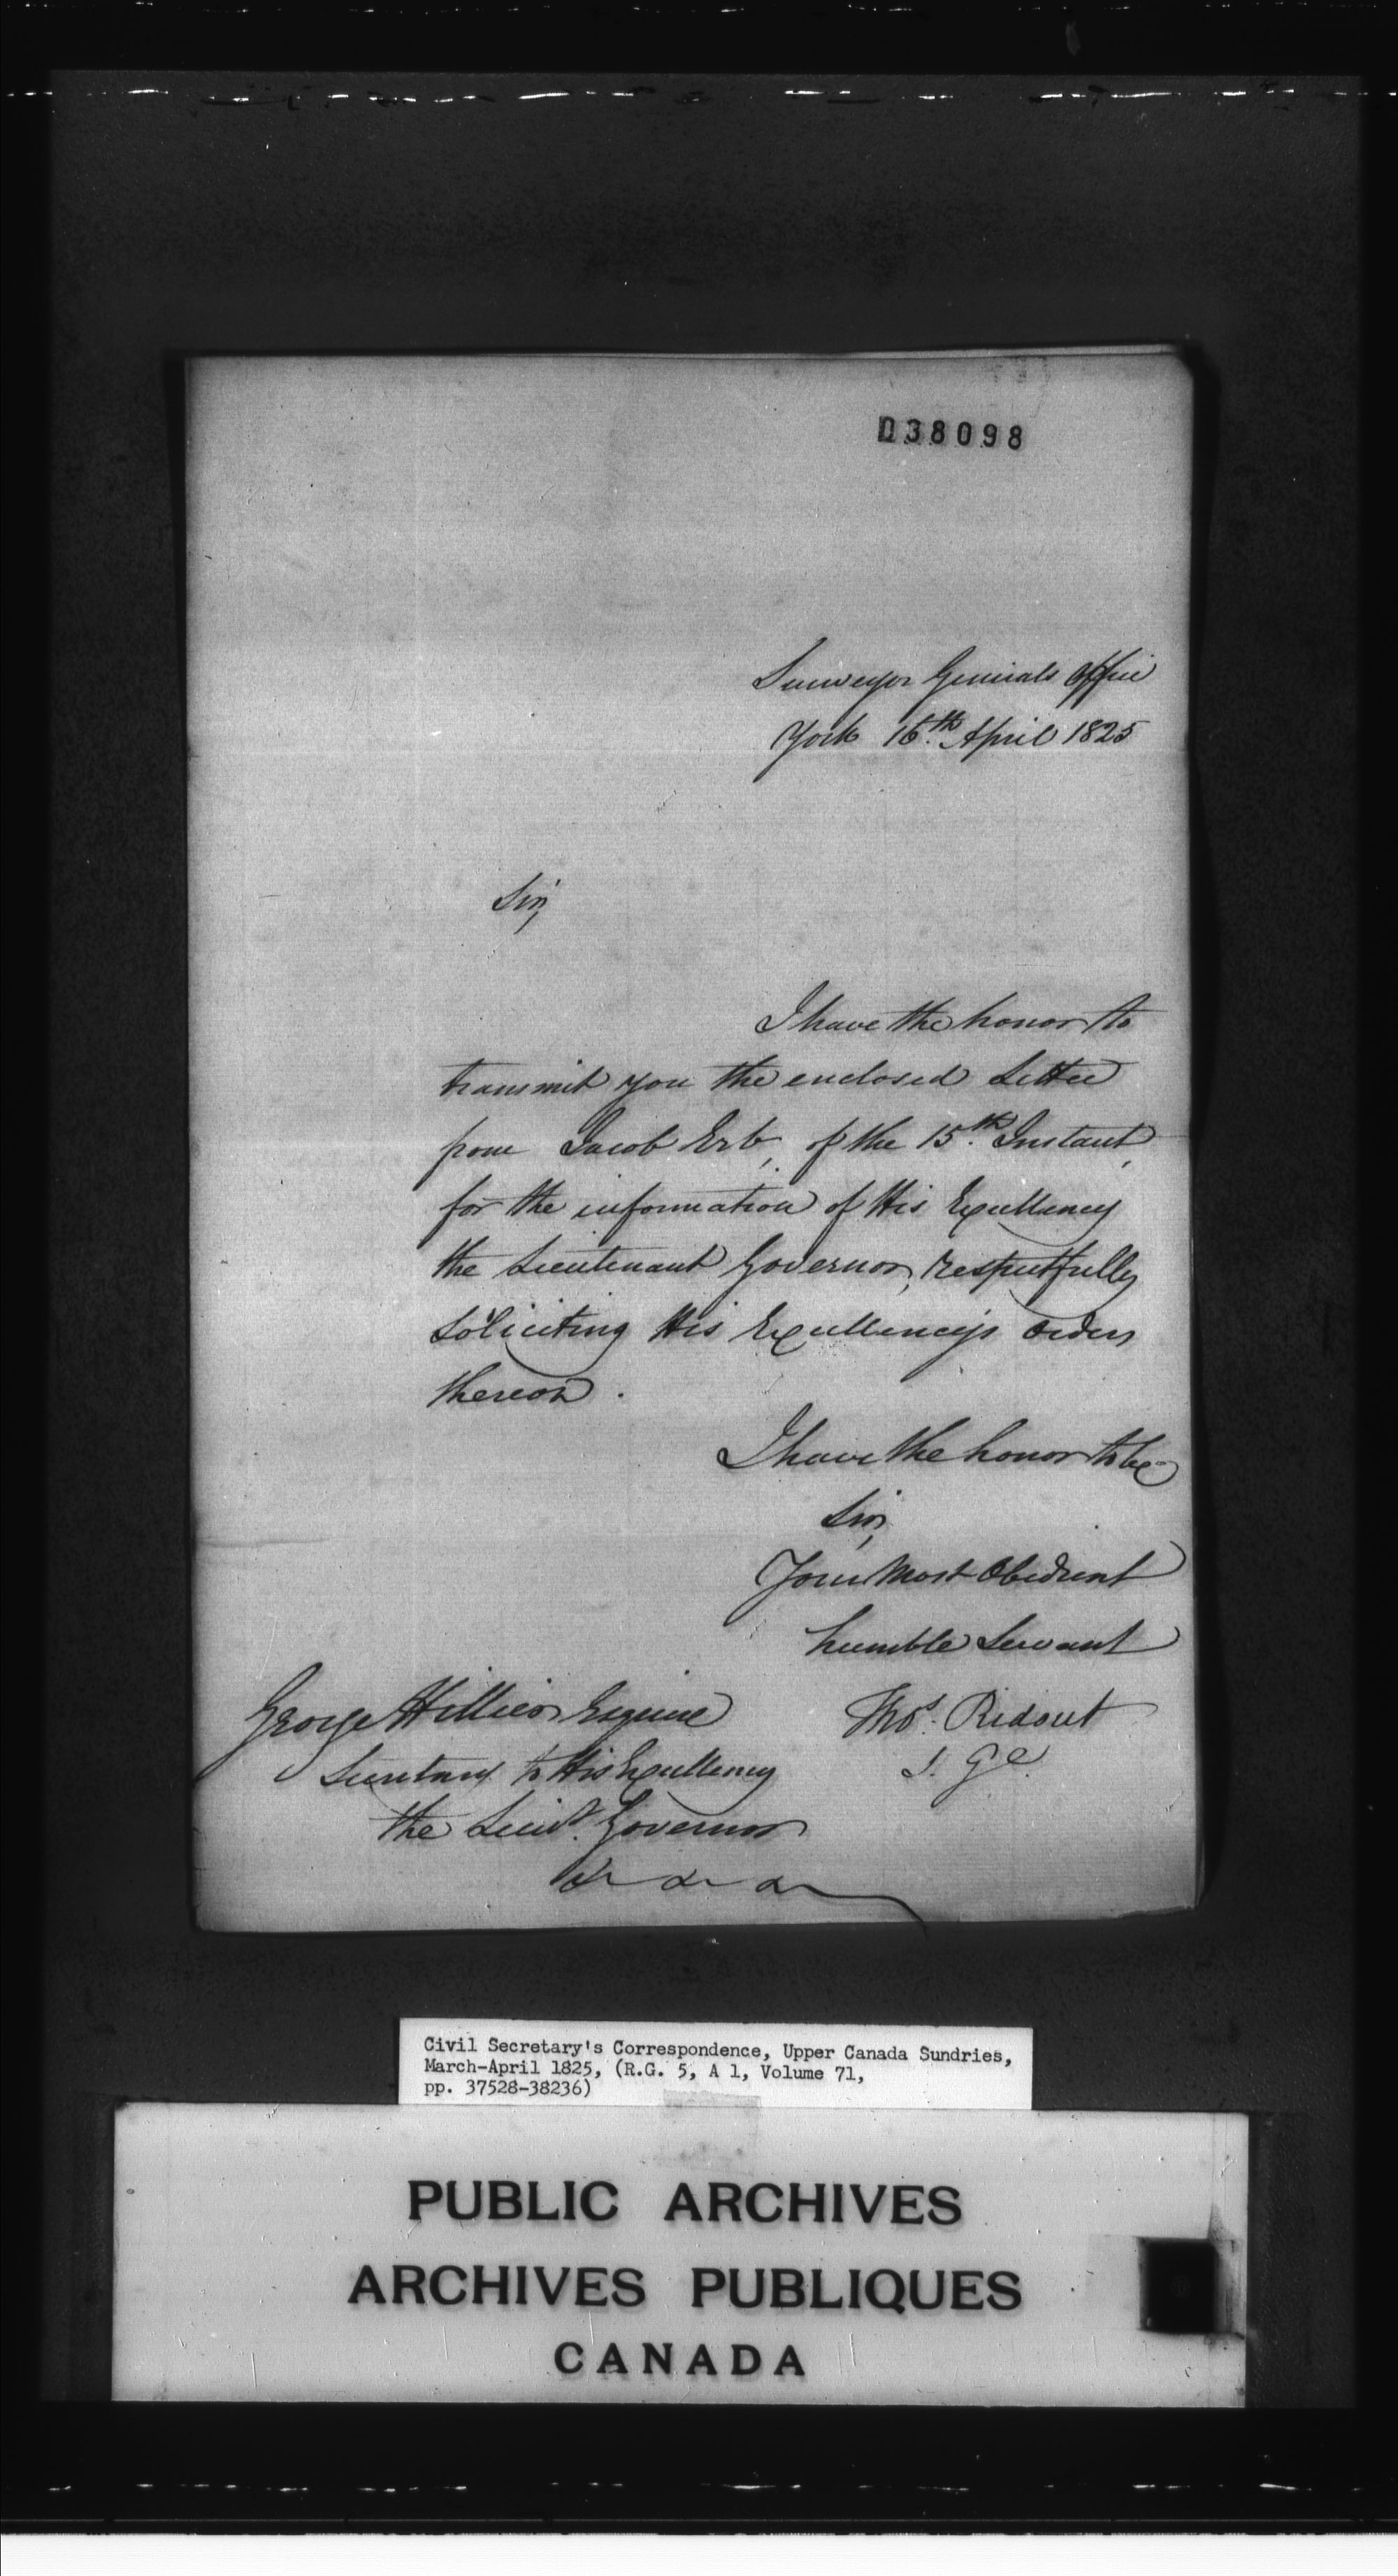 D38098
Surveyor Generals Office
York 16th. April 1825
Sir,
I have the honor to
transmit you the enclosed Letter
from Jacob Erb, of the 15th. Instant,
for the information of His Excellency
the Lieutenant Governor, respectfully
soliciting His Excellency's orders
thereon.
I have the honor to be
Sir,
Your Most Obedient
humble Servant
Thos. Ridout
S. Gl.
George Hillier Esquire
Secretary to His Excellency
the Lieut. Governor
&c &c &c
Civil Secretary's Correspondence, Upper Canada Sundries,
March-April 1825, (R.G. 5, A 1, Volume 71,
pp. 37528-38236)
PUBLIC ARCHIVES
ARCHIVES PUBLIQUES
CANADA